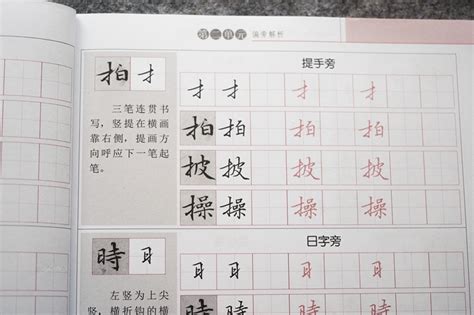 第二单元 偏旁解析
提手旁
拍 扌
三笔连贯书
写，竖提在横画
靠右侧，提画方
向呼应下一笔起
笔。
扌 扌 扌 扌 扌 扌
拍 拍 拍 拍 拍 拍
披 披 披 披 披 披
操 操 操 操 操 操
日字旁
時 日
左竖为上尖
竖，横折钩的横
日 日 日 日 日 日
時 時 時 時 時 時